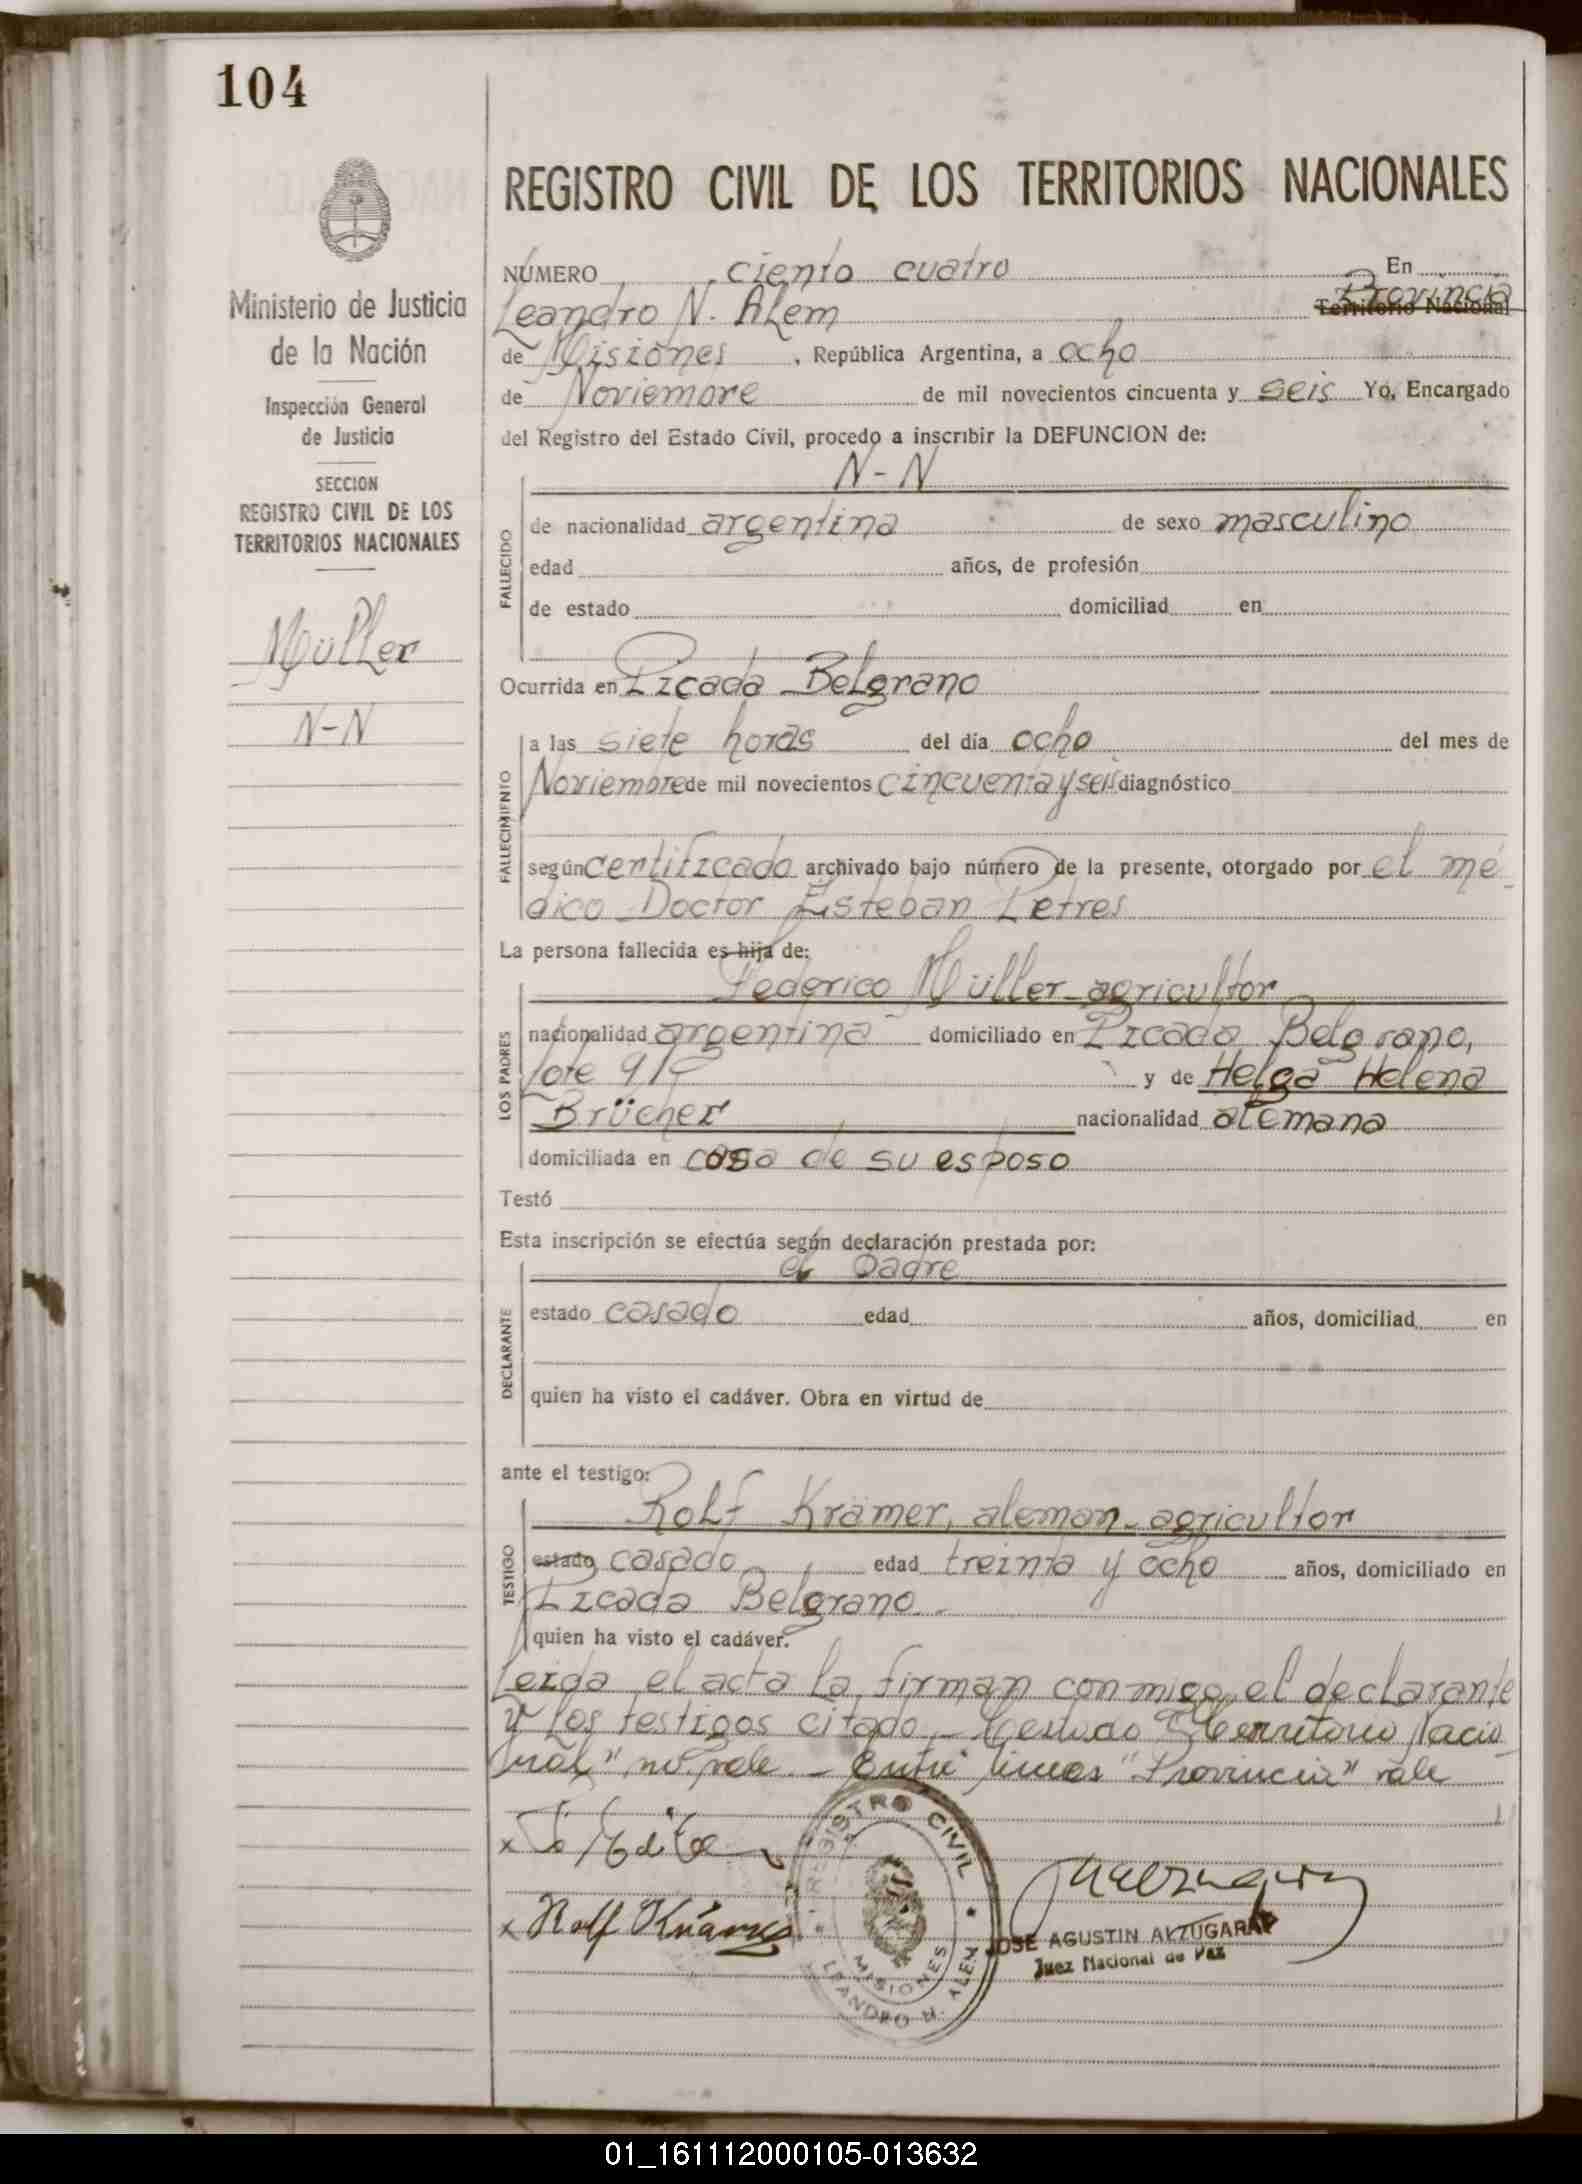 104
REGISTRO CIVIL DE LOS TERRITORIOS NACIONALES
Ministerio de Justicia
de la Nación
Inspección General
de Justicia
SECCION
REGISTRO CIVIL DE LOS
TERRITORIOS NACIONALES
Müller
N-N
NÚMERO ciento cuatro En
Leandro N. Alem Provincia
Territorio Nacional
de Misiones, República Argentina, a ocho
de Noviembre de mil novecientos cincuenta y seis Yo, Encargado
del Registro del Estado Civil, procedo a inscribir la DEFUNCION de:
N-N
FALLECIDO
de nacionalidad argentina de sexo masculino
edad años, de profesión
de estado domiciliad en
Ocurrida en Picada Belgrano
FALLECIMIENTO
a las siete horas del día ocho del mes de
Noviembre de mil novecientos cincuenta y seis diagnóstico
según certificado archivado bajo número de la presente, otorgado por el mé-
dico Doctor Esteban Petres
La persona fallecida es hija de:
Federico Müller-agricultor
LOS PADRES
nacionalidad argentina domiciliado en Picada Belgrano,
lote 91 y de Helga Helena
Brücher nacionalidad alemana
domiciliada en casa de su esposo
Testó
Esta inscripción se efectúa según declaración prestada por:
el padre
DECLARANTE
estado casado edad años, domiciliad en
quien ha visto el cadáver. Obra en virtud de
ante el testigo:
Rolf Krämer, aleman-agricultor
TESTIGO
estado casado edad treinta y ocho años, domiciliado en
Picada Belgrano.
quien ha visto el cadáver.
Leida el acta la firman conmigo, el declarante
y los testigos citado - Testado "Territorio Nacio
nal" no vale - Entre lineas "Provincia" vale
x
x Rolf Krämer
REGISTRO CIVIL
MISIONES
LEANDRO N. ALEM
JOSE AGUSTIN ALZUGARAY
Juez Nacional de Paz
01_161112000105-013632